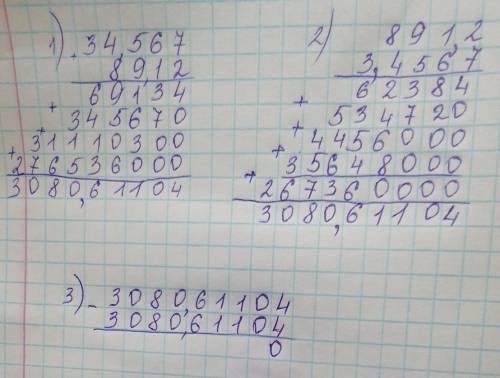 1) . 34,567
89,12
+ 69134
+ 345670
+ 31110300
+ 276536000
3080,61104
2) 891,2
3,4567
+ 62384
+ 534720
+ 4456000
+ 35648000
267360000
3080,61104
3) - 3080,61104
3080,61104
0